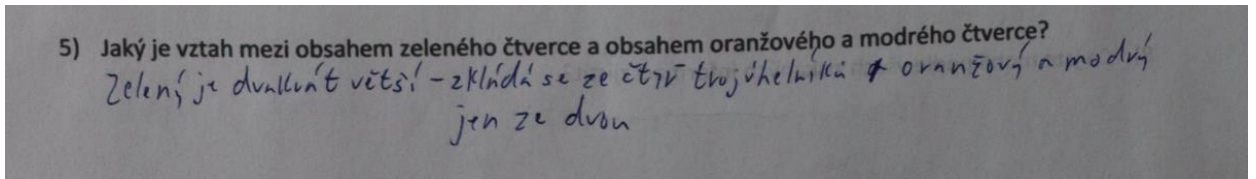 5) Jaký je vztah mezi obsahem zeleného čtverce a obsahem oranžového a modrého čtverce?
Zelený je dvakrát větší – zkládá se ze čtyř trojúhelníků oranžový a modrý
jen ze dvou